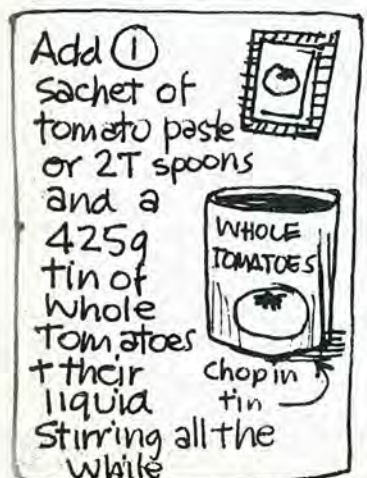 Add ①
sachet of
tomato paste
or 2T spoons
and a
425g
tin of
whole
Tomatoes
+ their
liquid
Stirring all the
while
WHOLE
TOMATOES
chop in
tin